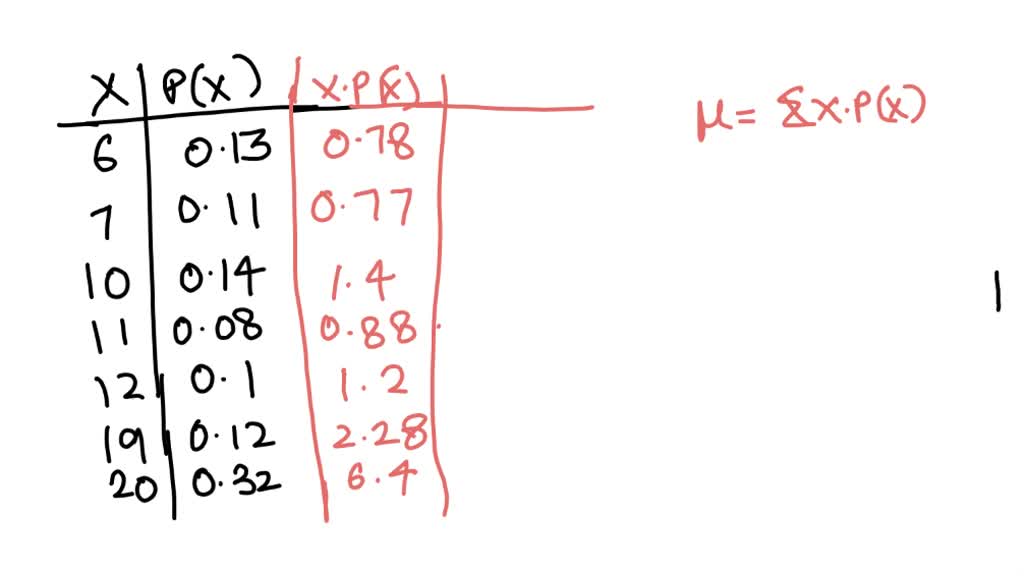 X P(X) X·P(X)
μ = ΣX·P(X)
6 0·13 0·78
7 0·11 0·77
10 0·14 1·4
11 0·08 0·88
12 0·1 1·2
19 0·12 2·28
20 0·32 6·4